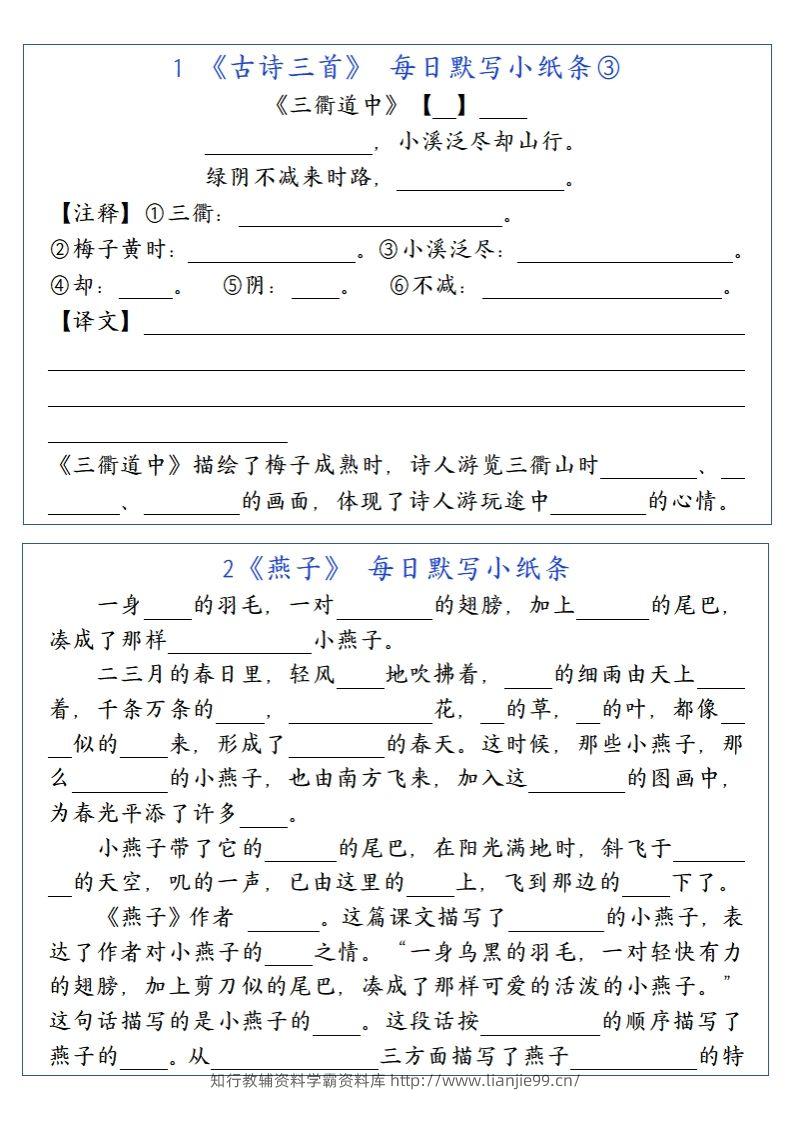 1 《古诗三首》 每日默写小纸条③
《三衢道中》【__】____
______________，小溪泛尽却山行。
绿阴不减来时路，______________。
【注释】①三衢：______________________。
②梅子黄时：______________。③小溪泛尽：__________________。
④却：____。 ⑤阴：____。 ⑥不减：____________________。
【译文】__________________________________________________
__________________________________________________________
__________________________________________________________
____________________
《三衢道中》描绘了梅子成熟时，诗人游览三衢山时________、__
______、________的画面，体现了诗人游玩途中________的心情。
2《燕子》 每日默写小纸条
一身____的羽毛，一对________的翅膀，加上______的尾巴，
凑成了那样____________小燕子。
二三月的春日里，轻风____地吹拂着，____的细雨由天上____
着，千条万条的____，____________花，__的草，__的叶，都像__
__似的____来，形成了________的春天。这时候，那些小燕子，那
么________的小燕子，也由南方飞来，加入这________的图画中，
为春光平添了许多____。
小燕子带了它的______的尾巴，在阳光满地时，斜飞于______
__的天空，叽的一声，已由这里的____上，飞到那边的____下了。
《燕子》作者 ______。这篇课文描写了________的小燕子，表
达了作者对小燕子的____之情。“一身乌黑的羽毛，一对轻快有力
的翅膀，加上剪刀似的尾巴，凑成了那样可爱的活泼的小燕子。”
这句话描写的是小燕子的____。这段话按__________的顺序描写了
燕子的____。从______________三方面描写了燕子__________的特
知行教辅资料学霸资料库 http://www.lianjie99.cn/